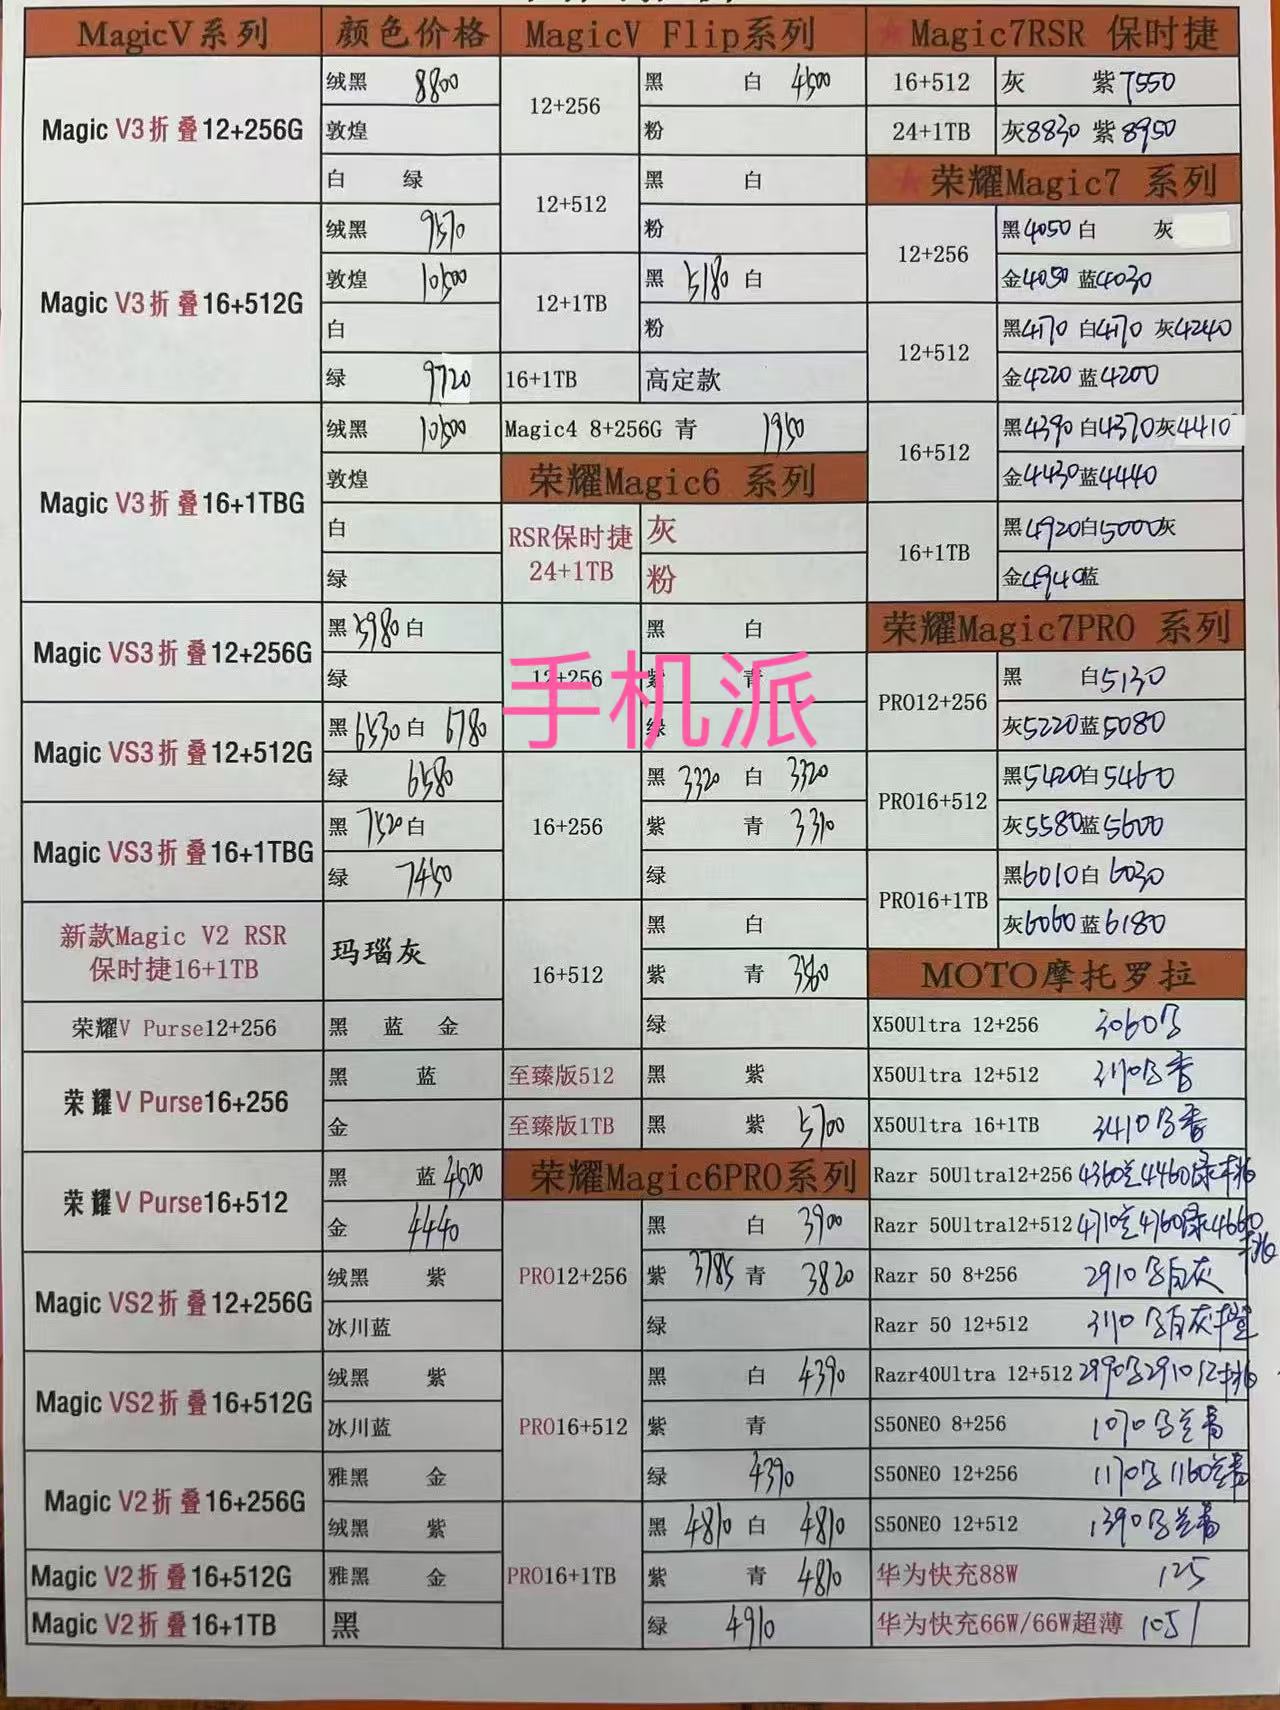 MagicV系列 颜色价格
Magic V3折叠12+256G 绒黑 8800
敦煌
白 绿
Magic V3折叠16+512G 绒黑 9570
敦煌 10500
白
绿 9720
Magic V3折叠16+1TBG 绒黑 10500
敦煌
白
绿
Magic VS3折叠12+256G 黑5980白
绿
Magic VS3折叠12+512G 黑6530白 6780
绿 6580
Magic VS3折叠16+1TBG 黑7520白
绿 7450
新款Magic V2 RSR
保时捷16+1TB 玛瑙灰
荣耀V Purse12+256 黑 蓝 金
荣耀V Purse16+256 黑 蓝
金
荣耀V Purse16+512 黑 蓝4500
金 4440
Magic VS2折叠12+256G 绒黑 紫
冰川蓝
Magic VS2折叠16+512G 绒黑 紫
冰川蓝
Magic V2折叠16+256G 雅黑 金
绒黑 紫
Magic V2折叠16+512G 雅黑 金
Magic V2折叠16+1TB 黑
MagicV Flip系列
12+256 黑 白 4500
粉
12+512 黑 白
粉
12+1TB 黑 5180 白
粉
16+1TB 高定款
Magic4 8+256G 青 1950
荣耀Magic6 系列
RSR保时捷
24+1TB 灰
粉
12+256 黑 白
紫 青
绿
手机派
16+256 黑 3320 白 3320
紫 青 3310
绿
16+512 黑 白
紫 青 3560
绿
至臻版512 黑 紫
至臻版1TB 黑 紫 5700
荣耀Magic6PRO系列
PRO12+256 黑 白 3900
紫 3785 青 3820
绿
PRO16+512 黑 白 4390
紫 青
绿 4390
PRO16+1TB 黑 4810 白 4810
紫 青 4810
绿 4910
★Magic7RSR 保时捷
16+512 灰 紫7550
24+1TB 灰8830 紫8950
★荣耀Magic7 系列
12+256 黑4050 白 灰
金4050 蓝4030
12+512 黑4170 白4170 灰4240
金4220 蓝4200
16+512 黑4390 白4370灰4410
金4430蓝4440
16+1TB 黑4920白5000灰
金4940蓝
荣耀Magic7PRO 系列
PRO12+256 黑 白5130
灰5220蓝5080
PRO16+512 黑5420白5460
灰5580蓝5600
PRO16+1TB 黑6010白6030
灰6060蓝6180
MOTO摩托罗拉
X50Ultra 12+256 3060
X50Ultra 12+512 3170
X50Ultra 16+1TB 3410
Razr 50Ultra12+256 4360 4460绿
Razr 50Ultra12+512 4710 4760绿4660
Razr 50 8+256 2910 白灰
Razr 50 12+512 3170 白灰
Razr40Ultra 12+512 2990 2910
S50NEO 8+256 1070
S50NEO 12+256 1170 1160
S50NEO 12+512 1390
华为快充88W 125
华为快充66W/66W超薄 105